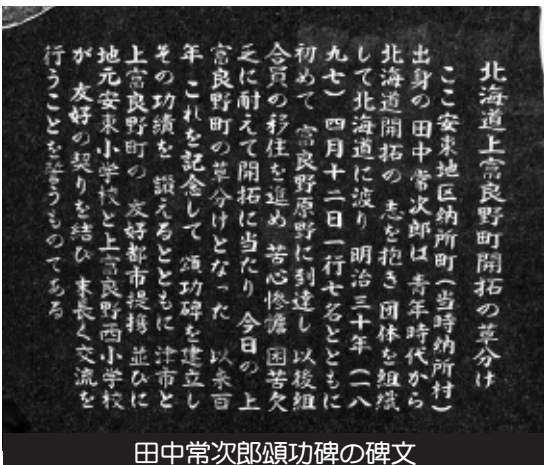 北海道上富良野町開拓の草分け
ここ安東地区納所町(当時納所村)
出身の田中常次郎は 青年時代から
北海道開拓の 志を抱き 団体を組織
して北海道に渡り 明治三十年(一八
九七) 四月十二日一行七名とともに
初めて 富良野原野に到達し 以後組
合員の移住を進め 苦心惨憺 困苦欠
乏に耐えて開拓に当たり 今日の 上
富良野町の草分けとなった 以来百
年 これを記念して 頌功碑を建立し
その功績を 讃えるとともに 津市と
上富良野町の 友好都市提携 並びに
地元安東小学校と上富良野西小学校
が 友好の契りを結び 末長く交流を
行うことを誓うものである
田中常次郎頌功碑の碑文